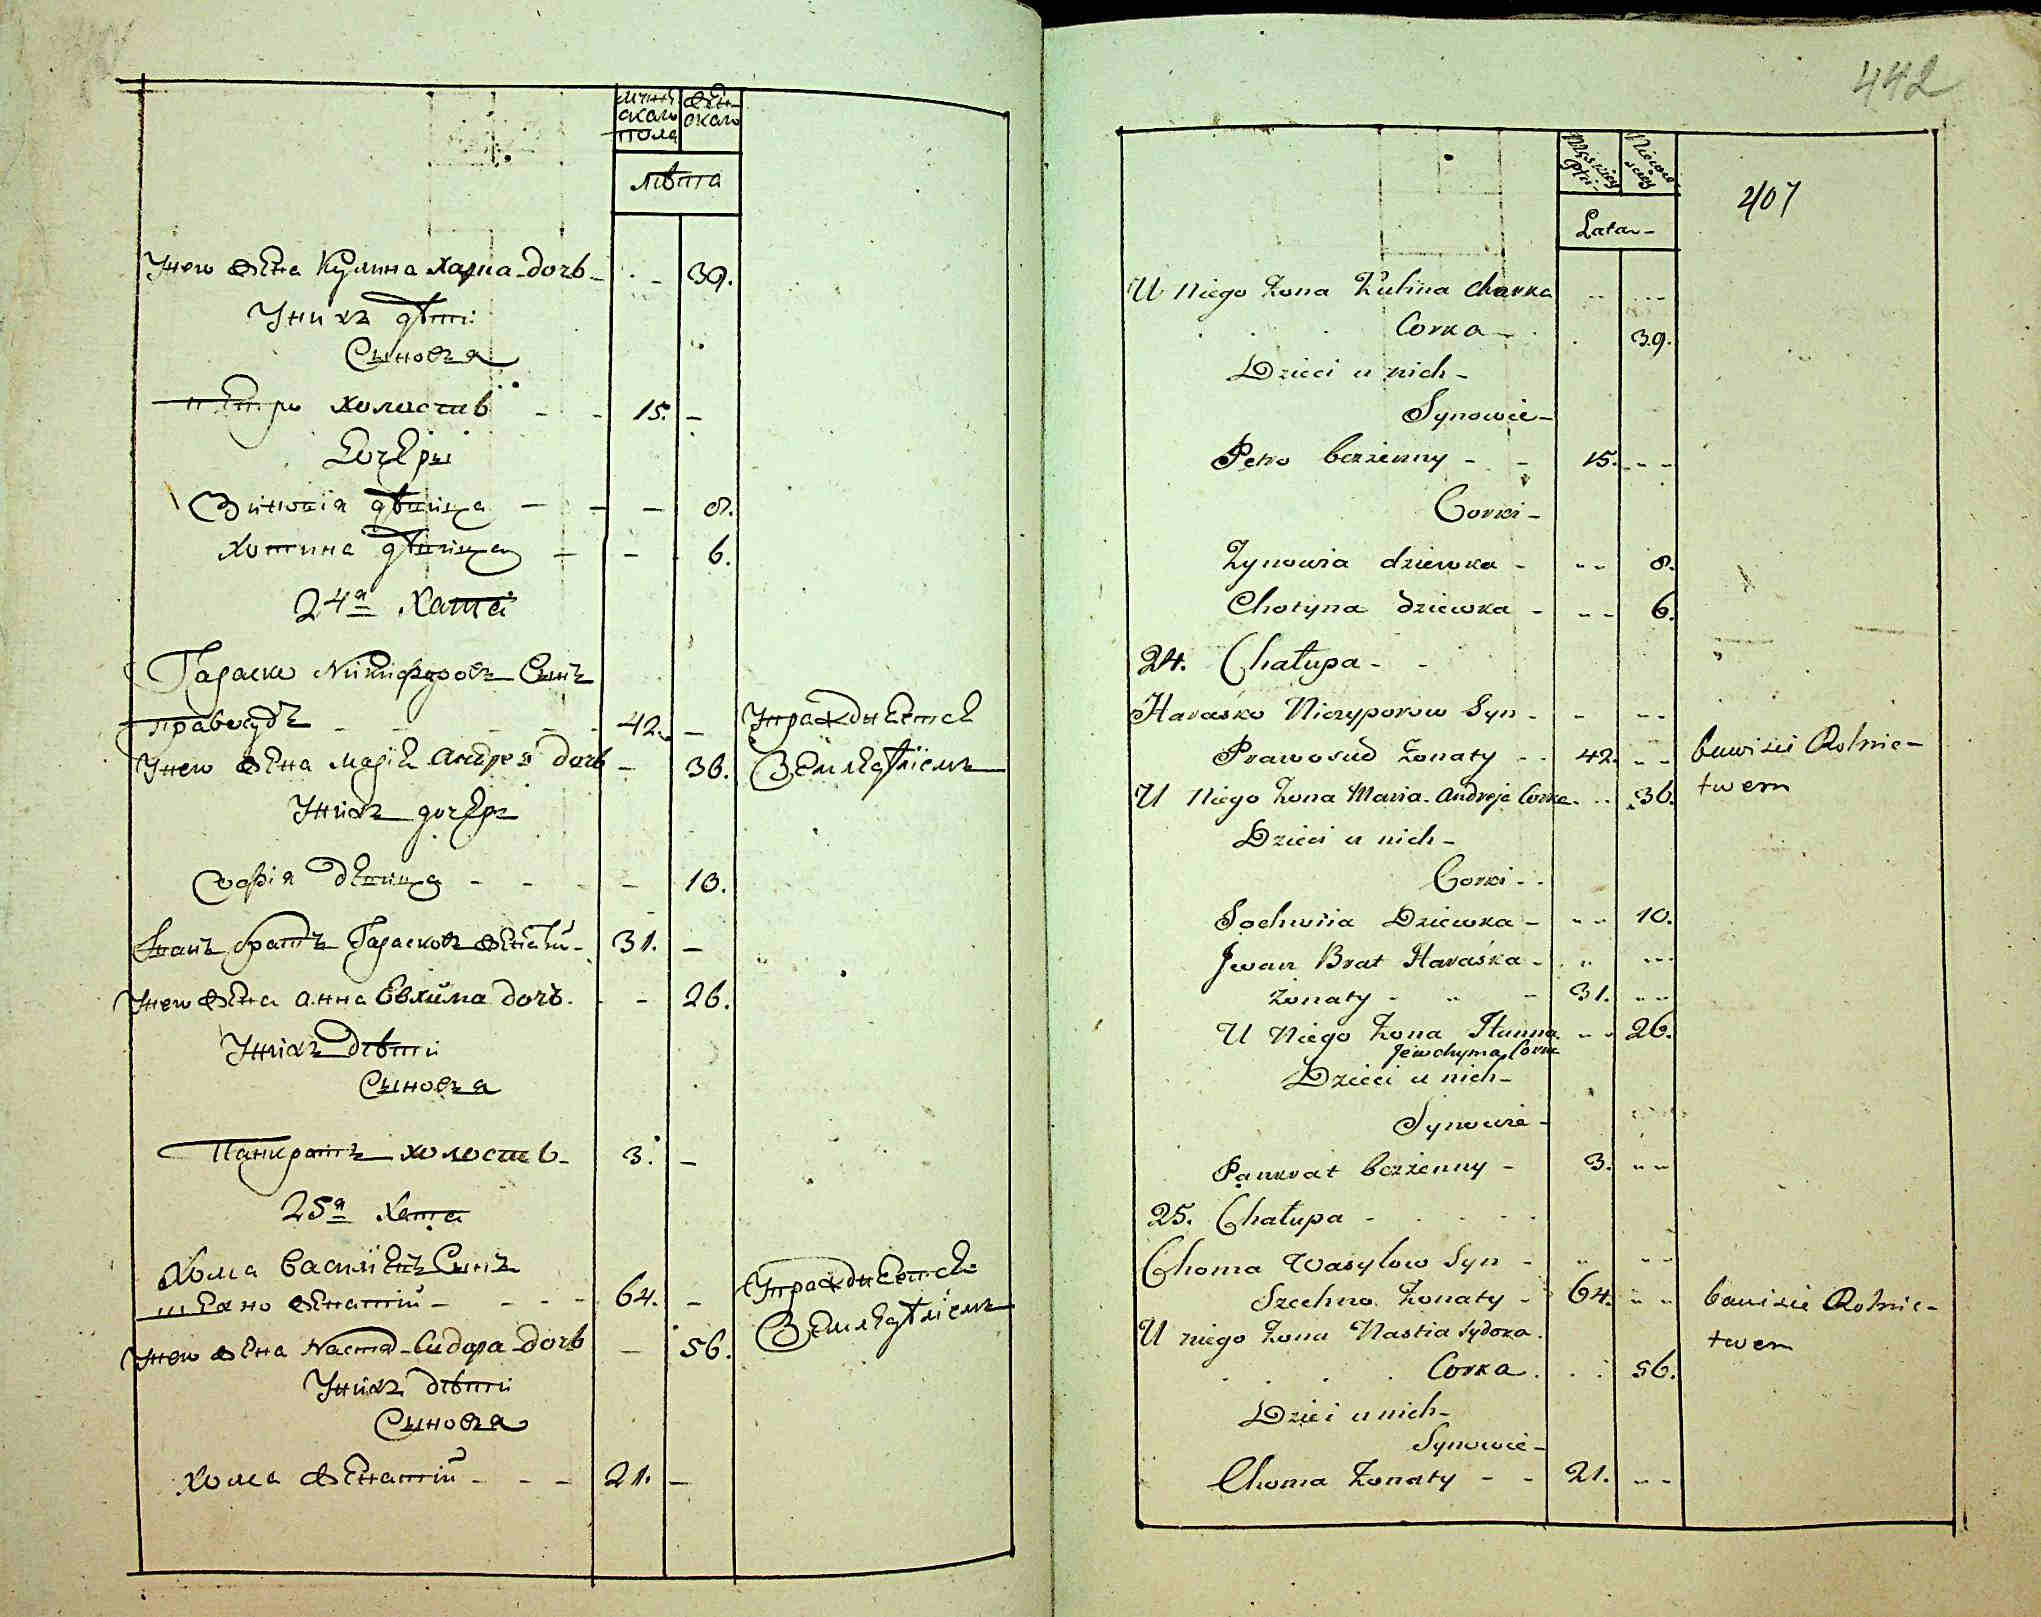 мужскаго пола
женскаго
лѣта
Унего жена Кулина Харка дочь - - 39.
Унихъ дѣти
Сыновья
петро холостъ - - 15. -
Дочери
Зиновія дѣвица - - - 8.
Хотина дѣвица - - 6.
24я Хата
Гараско Никифоровъ Сынъ
правосудъ - - - 42. - Упражднѣется
Унего жена Марія Андрея дочь - 36. Земледѣліемъ
Унихъ дочери
Софія дѣвица - - - 10.
Іванъ братъ Гарасковъ женатій - 31. -
Унего жена анна Евхима дочь. - - 26.
Унихъ дѣти
Сыновья
Панкратъ холостъ - 3. -
25я Хата
Хома Василіевъ Сынъ
шехно женатій - - - 64. - Упражднѣется
Унего жена Настя Сидора дочь - 56. Земледѣліемъ
Унихъ дѣти
Сыновья
Хома женатій - - - 21. -
442
Męzkiey Płci
Niewiesciey
407
Lata
U Niego Zona Kulina Charka
Corka - 39.
Dzieci u nich -
Synowie -
Petro bezzenny - - 15. - -
Corki -
Zynowia dziewka - - - 8.
Chotyna dziewka - - - 6.
24. Chałupa - -
Harasko Niczyporow Syn - - - -
Prawosud Zonaty - - 42. - - bawi sie Rolnic-
twem
U Niego Zona Maria Andreja Corka - - 36.
Dzieci u nich -
Corki - -
Sochwiia Dziewka - - - 10.
Jwan Brat Haraśka - - - -
zonaty - - - 31. - -
U Niego Zona Hanna - - 26.
Jewchyma Corka
Dzieci u nich -
Synowie -
Pankrat bezżenny - 3. - -
25. Chałupa - - - -
Choma Wasylow Syn - - - -
Szechno Zonaty - 64. - - bawi sie Rolnic-
twem
U niego Zona Nastia Sydora
Corka - - 56.
Dzieci u nich -
Synowie -
Choma Zonaty - - 21. - -